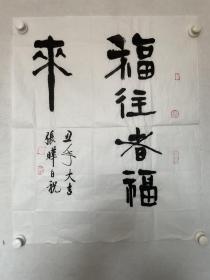 福往者福
來
丑年大吉
張曄自祝